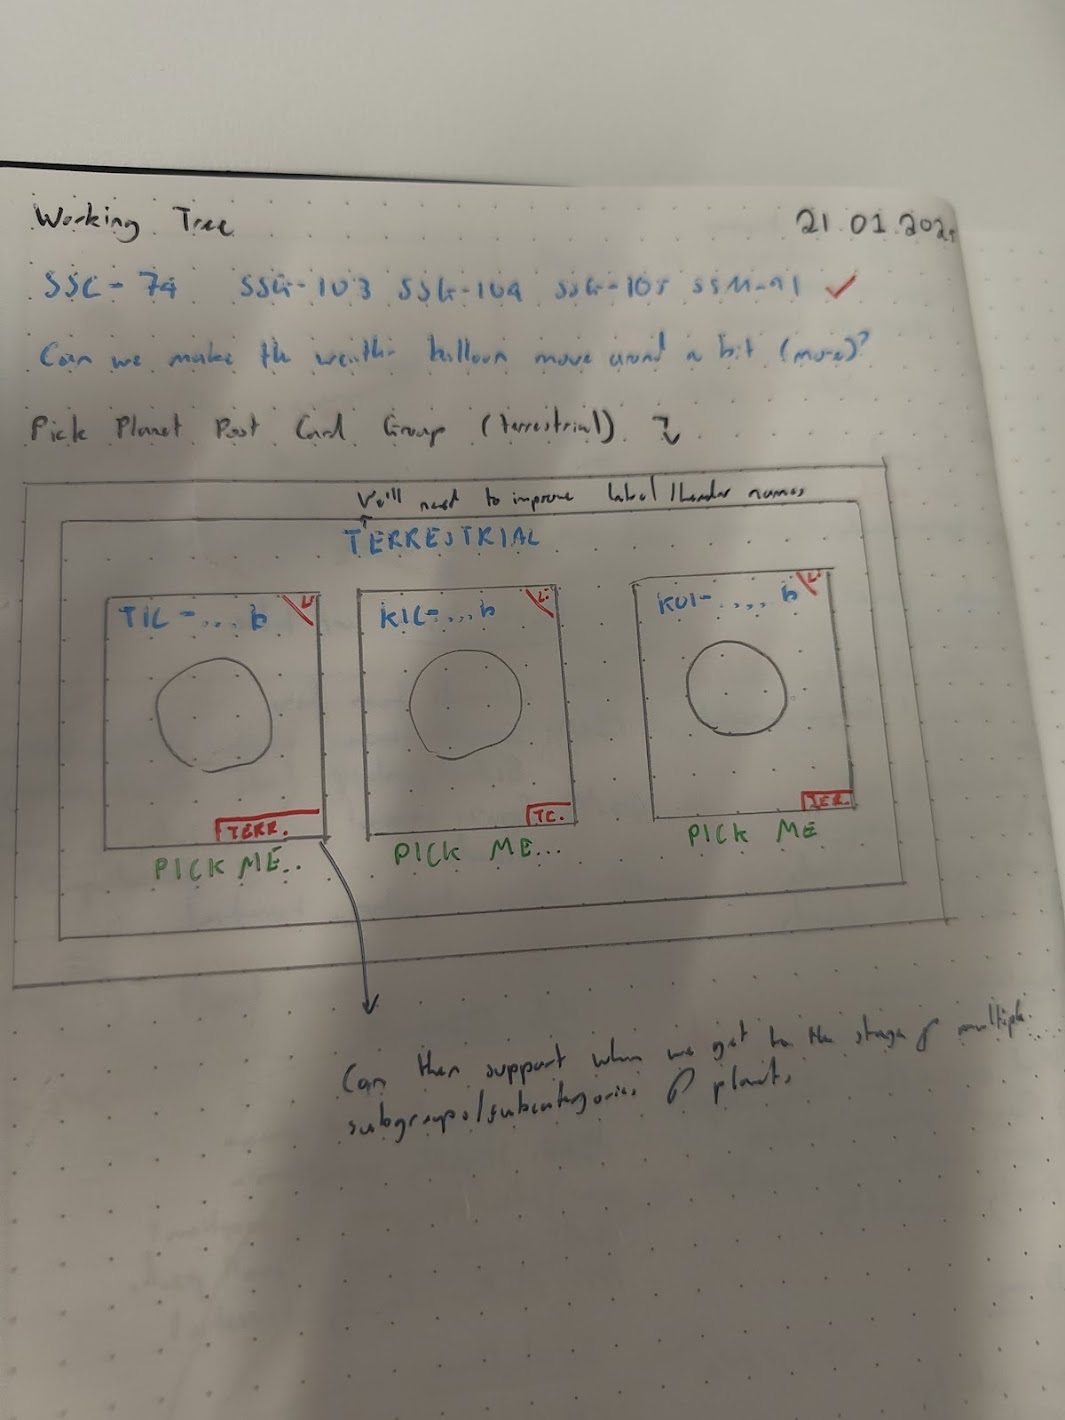 Working Tree 21.01.202
SSC-74 SSG-103 SSG-104 SSG-105 SSM-91
Can we make the weather balloon move around a bit (more)?
Pick Planet Post Card Group (terrestrial)
We'll need to improve label/header names
TERRESTRIAL
TIC-... b KIC-... b KOI-.... b
TERR. TE. TER.
PICK ME.. PICK ME... PICK ME
Can then support when we get to the stage of multiple
subgroups/subcategories of planets